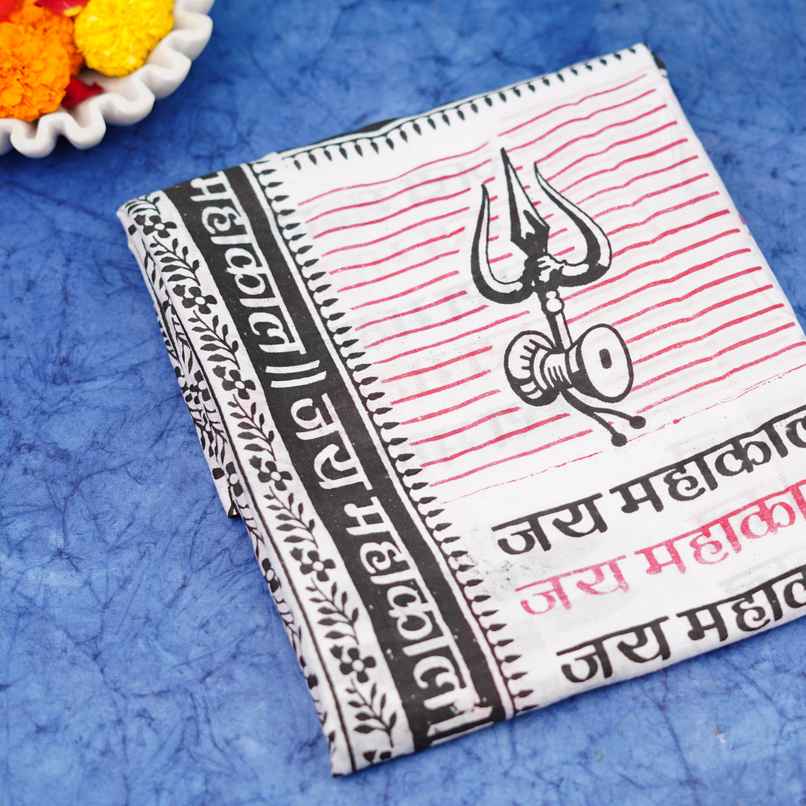 महाकाल || जय महाकाल
जय महाकाल
जय महाका
जय महाक